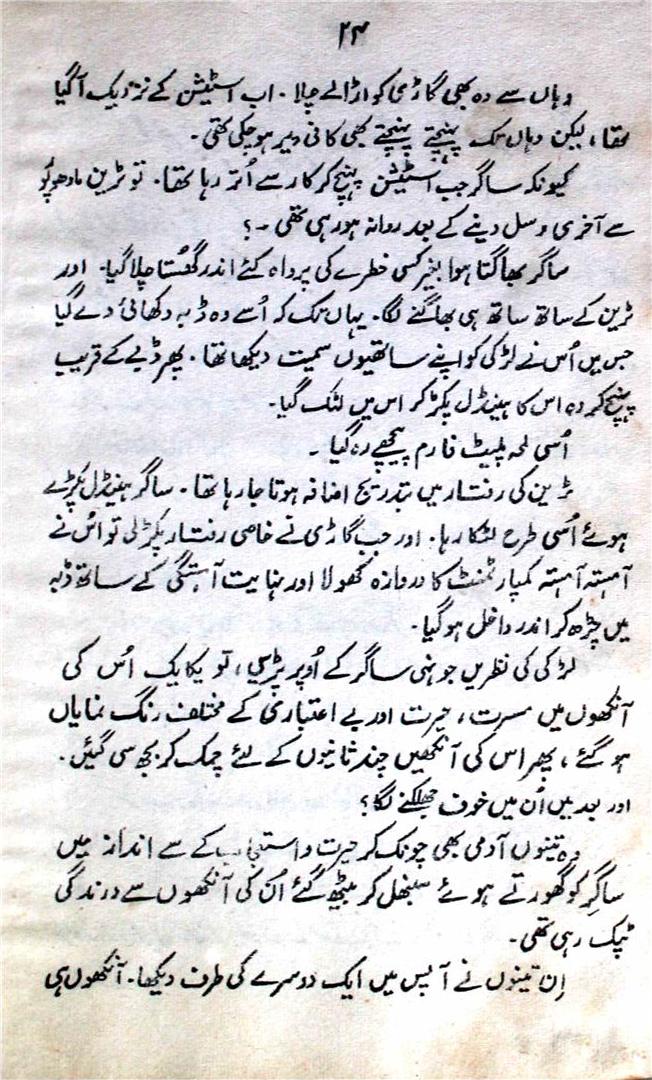 ۲۴
وہاں سے وہ بھی گاڑی کو اڑالے چلا۔ اب اسٹیشن کے نزدیک آگیا
تھا، لیکن وہاں تک پہنچتے پہنچتے بھی کافی دیر ہو چکی تھی۔
کیونکہ ساگر جب اسٹیشن پہنچ کر کار سے اُتر رہا تھا۔ تو ٹرین مادھوپُو
سے آخری وسل دینے کے بعد روانہ ہو رہی تھی۔؟
ساگر بھاگتا ہوا بغیر کسی خطرے کی پرواہ کئے اندر گھُستا چلا گیا۔ اور
ٹرین کے ساتھ ساتھ ہی بھاگنے لگا۔ یہاں تک کہ اُسے وہ ڈبہ دکھائی دے گیا
جس میں اُس نے لڑکی کو اپنے ساتھیوں سمیت دیکھا تھا۔ پھر ڈبے کے قریب
پہنچ کر وہ اس کا ہینڈل پکڑ کر اس میں لٹک گیا۔
اُسی لمحہ پلیٹ فارم پیچھے رہ گیا۔
ٹرین کی رفتار میں بتدریج اضافہ ہوتا جا رہا تھا۔ ساگر ہینڈل پکڑے
ہوئے اُسی طرح لٹکا رہا۔ اور جب گاڑی نے خاصی رفتار پکڑ لی تو اُس نے
آہستہ آہستہ کمپارٹمنٹ کا دروازہ کھولا اور نہایت آہستگی کے ساتھ ڈبہ
میں چڑھ کر اندر داخل ہو گیا۔
لڑکی کی نظریں جونہی ساگر کے اُوپر پڑیں، تو یکایک اُس کی
آنکھوں میں مسرت، حیرت اور بے اعتباری کے مختلف رنگ نمایاں
ہو گئے، پھر اس کی آنکھیں چند ثانیوں کے لئے چمک کر بجھ سی گئیں۔
اور بعد میں اُن میں خوف جھلکنے لگا؟
وہ تینوں آدمی بھی چونک کر حیرت و استعجاب کے سے انداز میں
ساگر کو گھورتے ہوئے سنبھل کر بیٹھ گئے اُن کی آنکھوں سے درندگی
ٹپک رہی تھی۔
اِن تینوں نے آپس میں ایک دوسرے کی طرف دیکھا۔ آنکھوں ہی